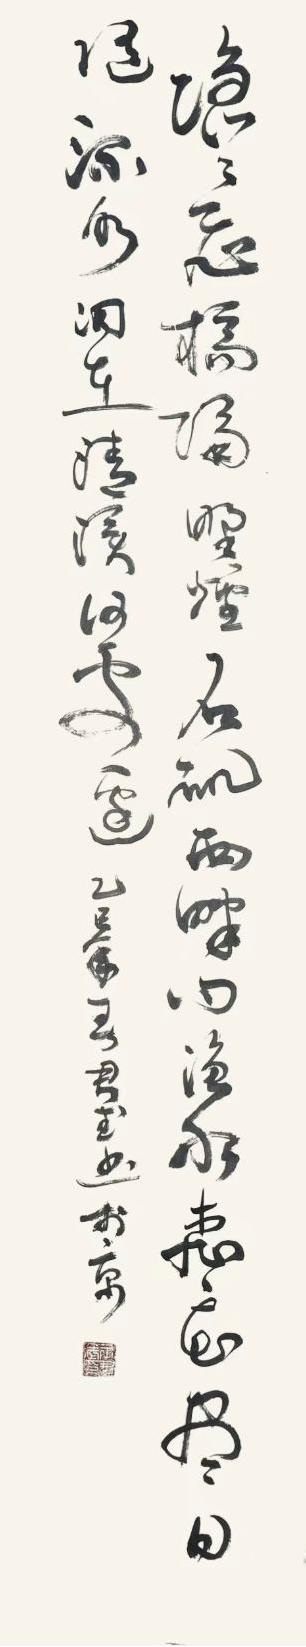 隐隐飞桥隔野煙石矶西畔问渔船桃花尽日
随流水洞在清溪何处边
乙巳 春君武书于京